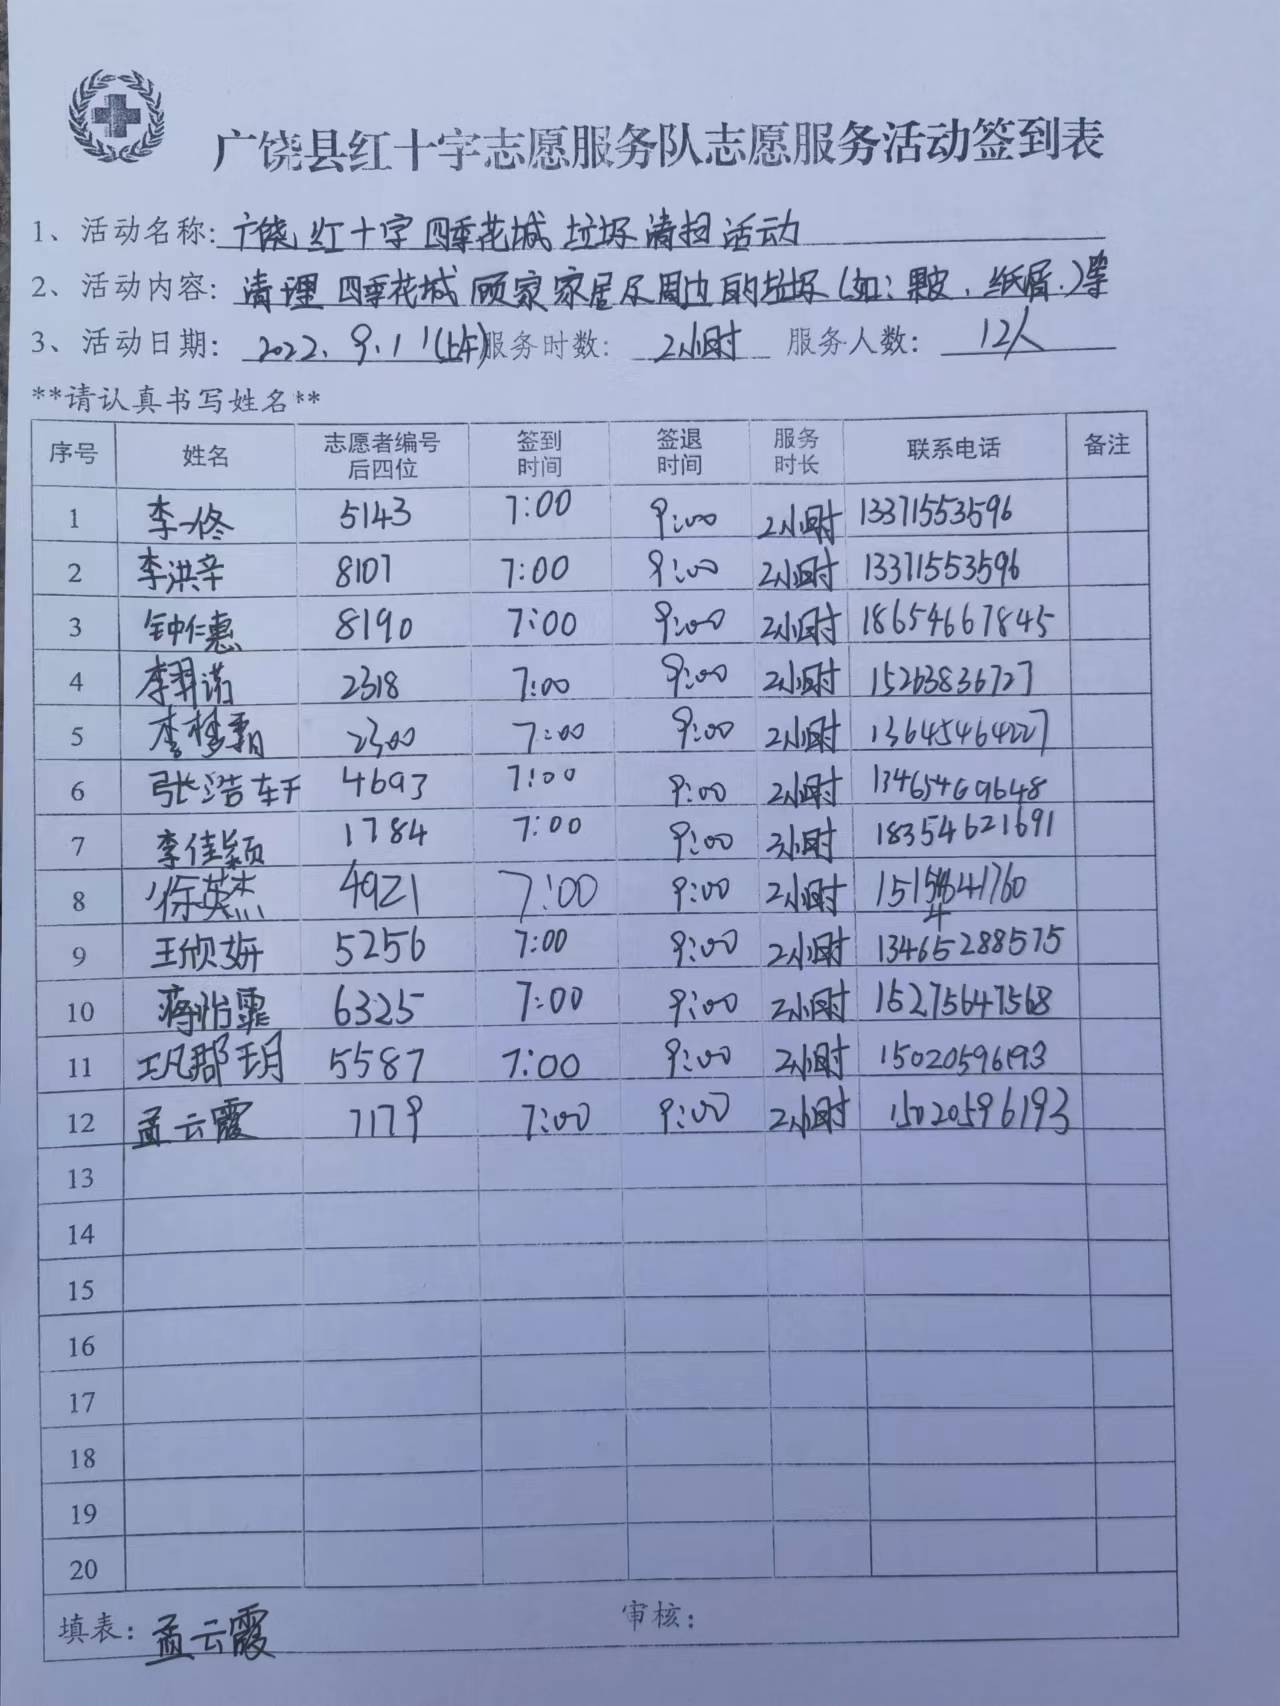 广饶县红十字志愿服务队志愿服务活动签到表
1、活动名称: 广饶红十字四季花城垃圾清扫活动
2、活动内容: 清理四季花城顾家家居及周边的垃圾(如:果皮、纸屑.)等
3、活动日期: 2022.9.11(上午) 服务时数: 2小时 服务人数: 12人
**请认真书写姓名**
序号 姓名 志愿者编号后四位 签到时间 签退时间 服务时长 联系电话 备注
1 李一佟 5143 7:00 9:00 2小时 13371553596
2 李洪辛 8107 7:00 9:00 2小时 13371553596
3 钟仁惠 8190 7:00 9:00 2小时 18654667845
4 李羿诺 2318 7:00 9:00 2小时 15263836727
5 李梦霜 2300 7:00 9:00 2小时 13645464227
6 张浩轩 4693 7:00 9:00 2小时 13465469648
7 李佳颖 1784 7:00 9:00 2小时 18354621691
8 徐英杰 4921 7:00 9:00 2小时
9 王欣妍 5256 7:00 9:00 2小时 13465288575
10 蒋怡霏 6325 7:00 9:00 2小时 15275647568
11 巩郡玥 5587 7:00 9:00 2小时 15020596193
12 孟云霞 7179 7:00 9:00 2小时 15020596193
13
14
15
16
17
18
19
20
填表: 孟云霞 审核: